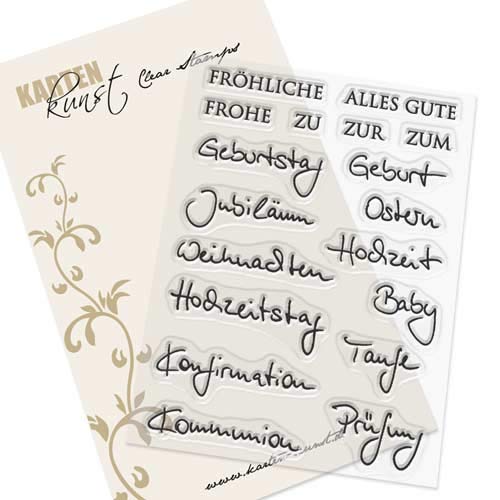 KARTEN
Kunst Clear Stamps
FRÖHLICHE ALLES GUTE
FROHE ZU ZUR ZUM
Geburtstag Geburt
Jubiläum Ostern
Weihnachten Hochzeit
Hochzeitstag Baby
Konfirmation Taufe
Kommunion Prüfung
www.karten-kunst.de